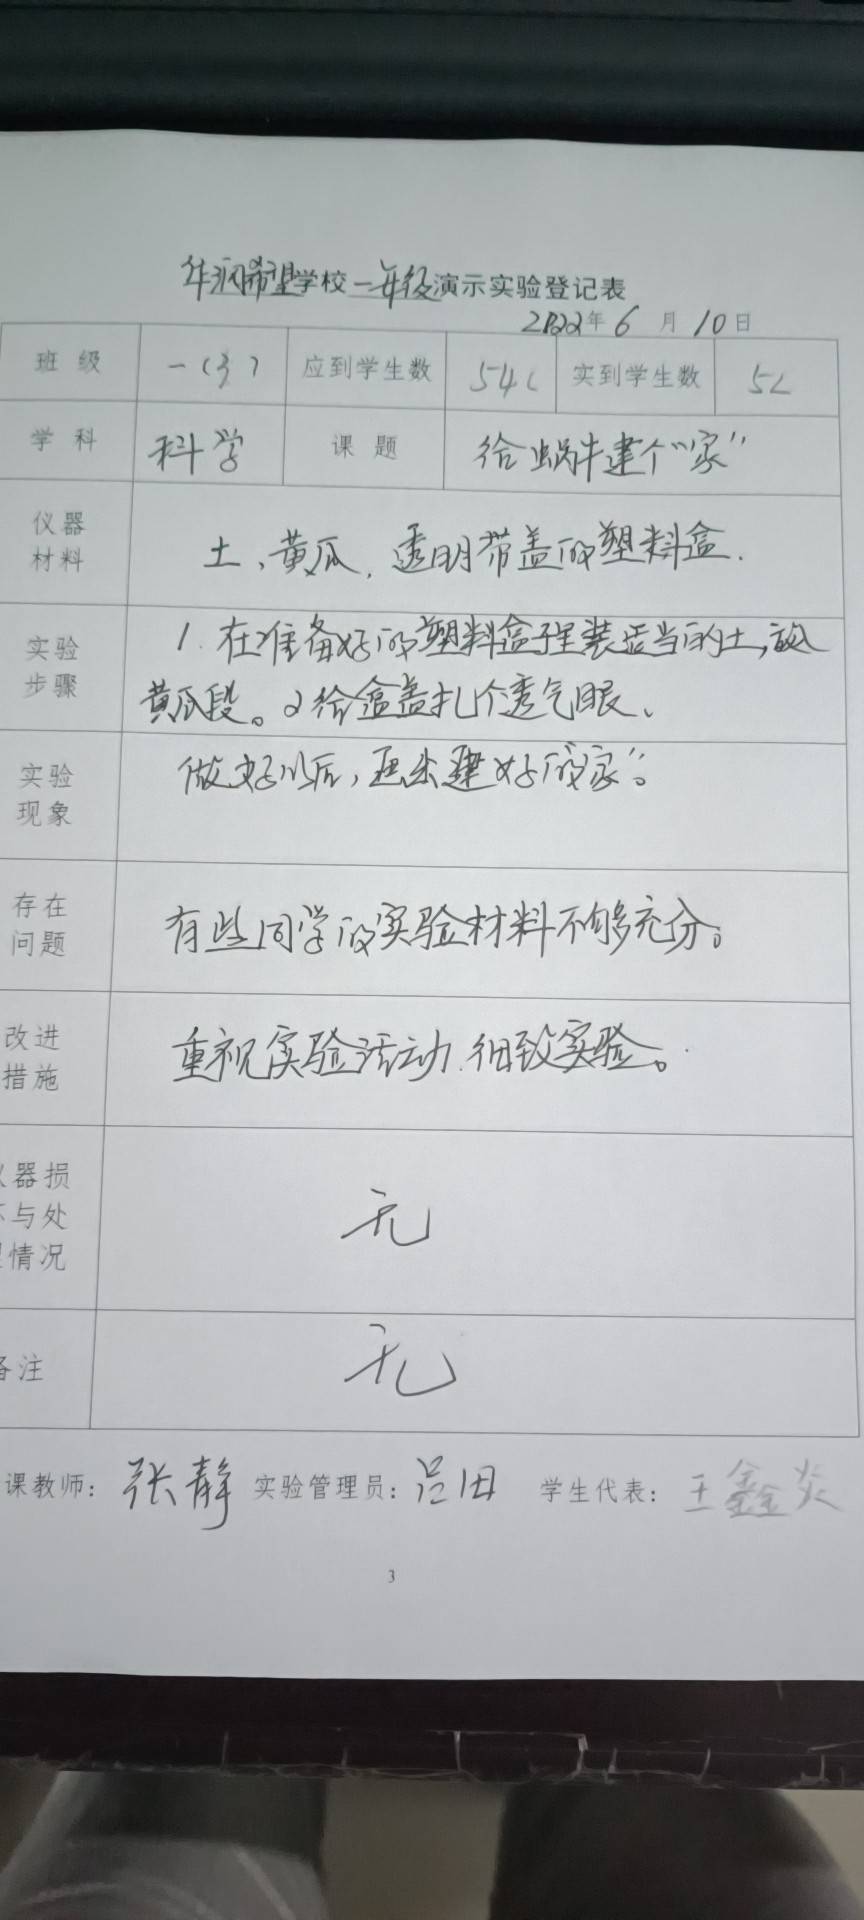 华润希望学校一年级演示实验登记表
2022年6月10日
班级 一(3) 应到学生数 54人 实到学生数 52
学科 科学 课题 给蜗牛建个“家”
仪器
材料
土、黄瓜、透明带盖的塑料盒.
实验
步骤
1.在准备好的塑料盒子里装适当的土,放
黄瓜段。2给盒盖扎个透气眼、
实验
现象
做好以后,画出建好的“家”。
存在
问题
有些同学的实验材料不够充分。
改进
措施
重视实验活动.细致实验。
器损
与处
情况
无
备注
无
课教师: 张静 实验管理员: 吕田 学生代表: 王鑫炎
3